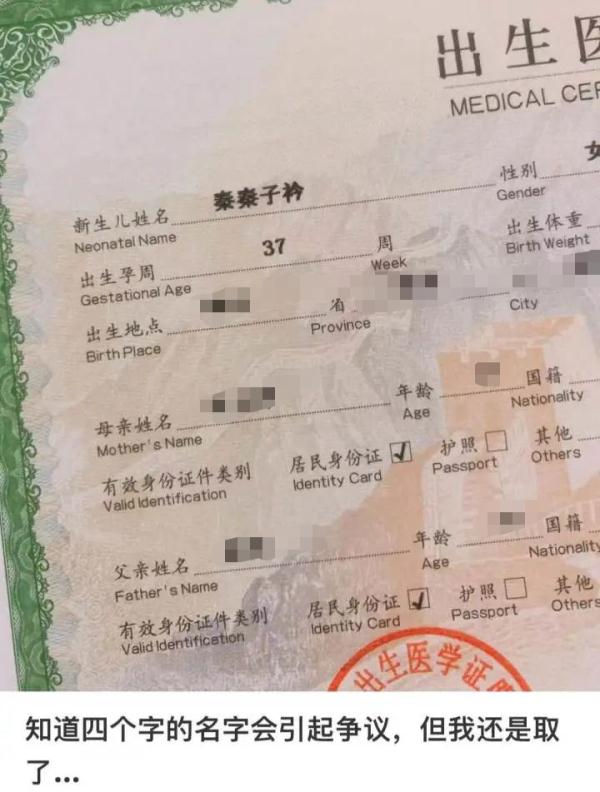 出生医
MEDICAL CER
新生儿姓名 秦秦子衿 性别 女
Neonatal Name Gender
出生孕周 37 周 出生体重
Gestational Age Week Birth Weight
出生地点 省
Birth Place Province City
母亲姓名 年龄 国籍
Mother's Name Age Nationality
有效身份证件类别 居民身份证 护照 其他
Valid Identification Identity Card Passport Others
父亲姓名 年龄 国籍
Father's Name Age Nationality
有效身份证件类别 居民身份证 护照 其他
Valid Identification Identity Card Passport Others
出生医学证明
知道四个字的名字会引起争议，但我还是取
了...